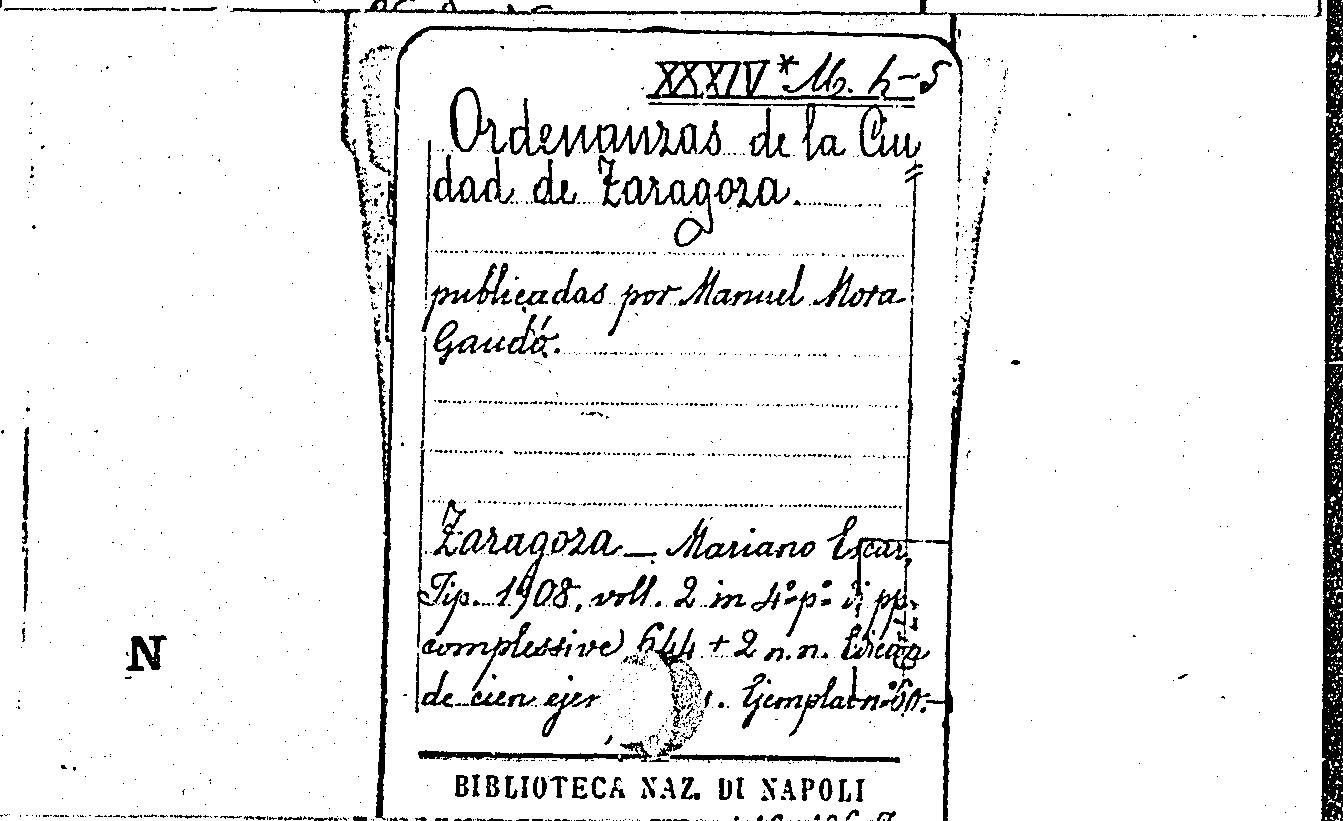 XXXIV * M. h-5
Ordenanzas de la Ciu
dad de Zaragoza.
publicadas por Manuel Mora
Gaudó.
Zaragoza — Mariano Escar,
Tip. 1908, voll. 2 in 4º pº di pp.
complessive 644 + 2 n.n.
de cien ejem . Ejemplar nº 60.
N
BIBLIOTECA NAZ. DI NAPOLI